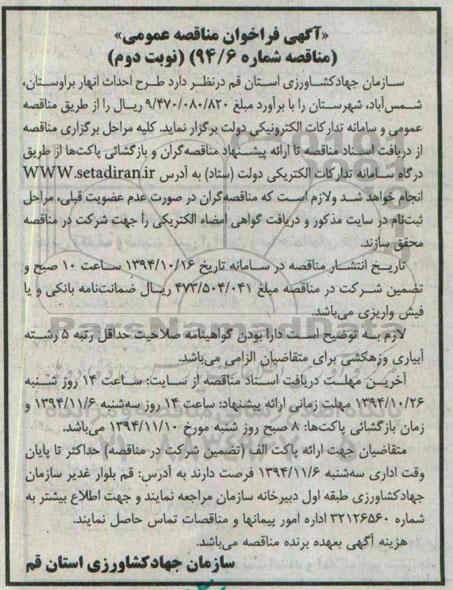 «آگهی فراخوان مناقصه عمومی»
(مناقصه شماره ۹۴/۶) (نوبت دوم)
سازمان جهادکشاورزی استان قم درنظر دارد طرح احداث انهار براوستان،
شمس‌آباد، شهرستان را با برآورد مبلغ ۹/۴۷۰/۰۸۰/۸۲۰ ریال را از طریق مناقصه
عمومی و سامانه تدارکات الکترونیکی دولت برگزار نماید. کلیه مراحل برگزاری مناقصه
از دریافت اسناد مناقصه تا ارائه پیشنهاد مناقصه‌گران و بازگشائی پاکت‌ها از طریق
درگاه سامانه تدارکات الکتریکی دولت (ستاد) به آدرس WWW.setadiran.ir
انجام خواهد شد ولازم است که مناقصه‌گران در صورت عدم عضویت قبلی، مراحل
ثبت‌نام در سایت مذکور و دریافت گواهی امضاء الکتریکی را جهت شرکت در مناقصه
محقق سازند.
تاریخ انتشار مناقصه در سامانه تاریخ ۱۳۹۴/۱۰/۱۶ ساعت ۱۰ صبح و
تضمین شرکت در مناقصه مبلغ ۴۷۳/۵۰۴/۰۴۱ ریال ضمانت‌نامه بانکی و یا
فیش واریزی می‌باشد.
لازم به توضیح است دارا بودن گواهینامه صلاحیت حداقل رتبه ۵ رشته
آبیاری وزهکشی برای متقاضیان الزامی می‌باشد.
آخرین مهلت دریافت اسناد مناقصه از سایت: ساعت ۱۴ روز شنبه
۱۳۹۴/۱۰/۲۶ مهلت زمانی ارائه پیشنهاد: ساعت ۱۴ روز سه‌شنبه ۱۳۹۴/۱۱/۶ و
زمان بازگشائی پاکت‌ها: ۸ صبح روز شنبه مورخ ۱۳۹۴/۱۱/۱۰ می‌باشد.
متقاضیان جهت ارائه پاکت الف (تضمین شرکت در مناقصه) حداکثر تا پایان
وقت اداری سه‌شنبه ۱۳۹۴/۱۱/۶ فرصت دارند به آدرس: قم بلوار غدیر سازمان
جهادکشاورزی طبقه اول دبیرخانه سازمان مراجعه نمایند و جهت اطلاع بیشتر به
شماره ۳۲۱۲۶۵۶۰ اداره امور پیمانها و مناقصات تماس حاصل نمایند.
هزینه آگهی بعهده برنده مناقصه می‌باشد.
سازمان جهادکشاورزی استان قم
ParsNamadData